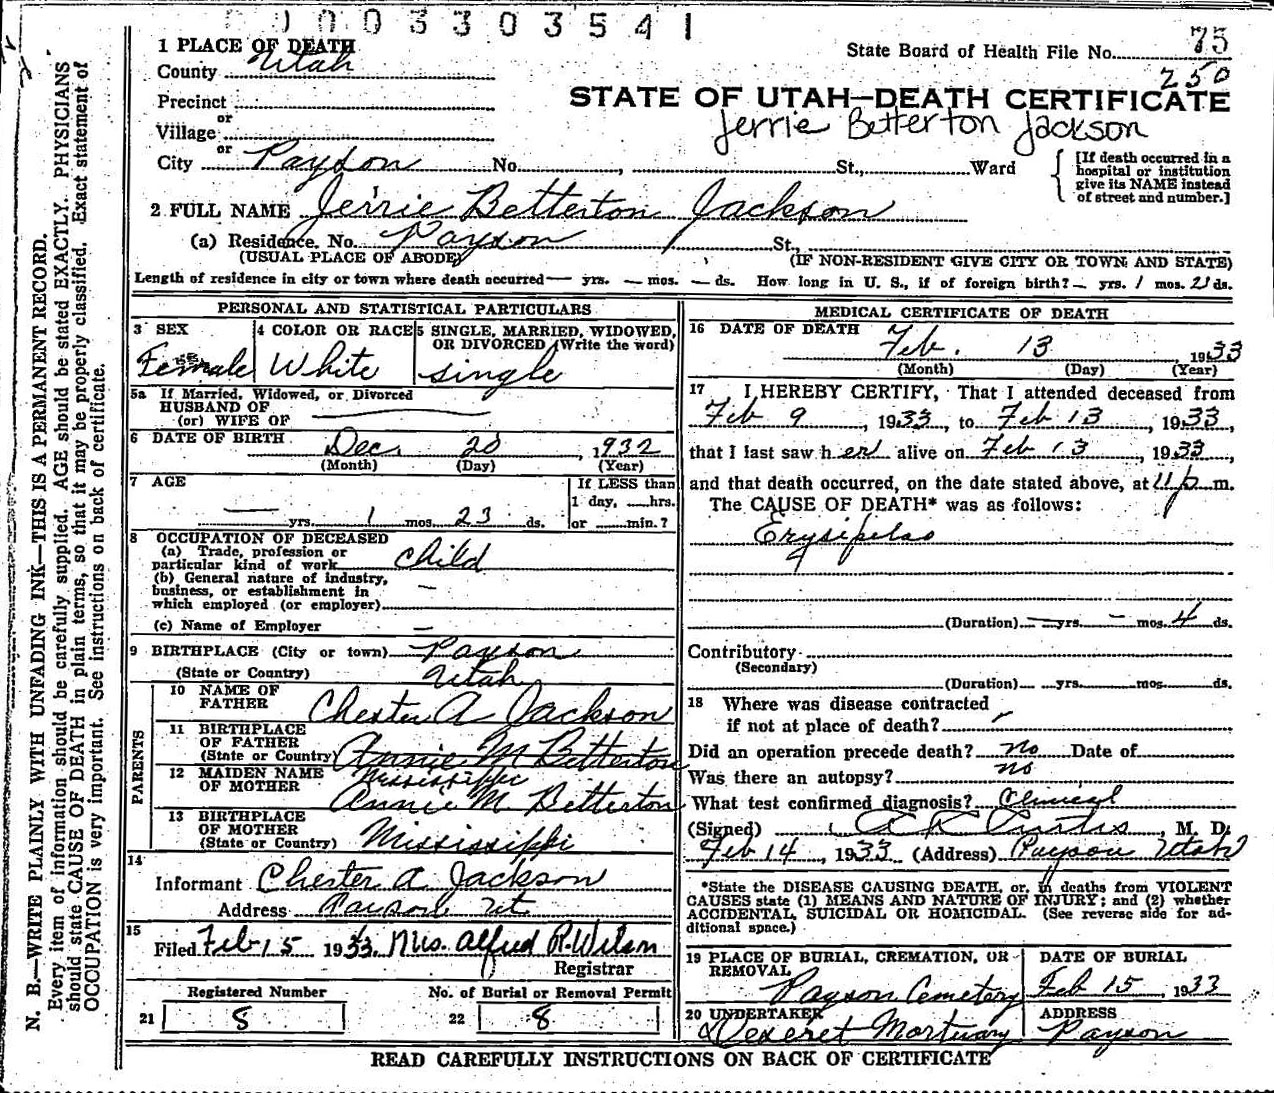 0003303541
1 PLACE OF DEATH
County Utah
State Board of Health File No. 75
250
Precinct
or
Village
STATE OF UTAH—DEATH CERTIFICATE
Jerrie Betterton Jackson
or
City Payson No. , St., Ward
[If death occurred in a hospital or institution give its NAME instead of street and number.]
2 FULL NAME Jerrie Betterton Jackson
(a) Residence. No. Payson St.,
(USUAL PLACE OF ABODE) (IF NON-RESIDENT GIVE CITY OR TOWN AND STATE)
Length of residence in city or town where death occurred — yrs. — mos. — ds. How long in U. S., if of foreign birth? — yrs. 1 mos. 21 ds.
PERSONAL AND STATISTICAL PARTICULARS
3 SEX Female
4 COLOR OR RACE White
5 SINGLE, MARRIED, WIDOWED, OR DIVORCED (Write the word) single
5a If Married, Widowed, or Divorced
HUSBAND OF
(or) WIFE OF —
6 DATE OF BIRTH Dec. 20, 1932
(Month) (Day) (Year)
7 AGE — yrs. 1 mos. 23 ds.
If LESS than
1 day, hrs.
or min.?
8 OCCUPATION OF DECEASED
(a) Trade, profession or
particular kind of work child
(b) General nature of industry,
business, or establishment in
which employed (or employer) —
(c) Name of Employer —
9 BIRTHPLACE (City or town) Payson
(State or Country) Utah
PARENTS
10 NAME OF FATHER Chester A Jackson
11 BIRTHPLACE OF FATHER (State or Country) Annie M Betterton
Mississippi
12 MAIDEN NAME OF MOTHER Annie M. Betterton
13 BIRTHPLACE OF MOTHER (State or Country) Mississippi
14
Informant Chester A Jackson
Address Payson Ut
15
Filed Feb 15 1933. Mrs. Alfred R. Wilson
Registrar
Registered Number No. of Burial or Removal Permit
21 8 22 8
MEDICAL CERTIFICATE OF DEATH
16 DATE OF DEATH Feb. 13, 1933
(Month) (Day) (Year)
17 I HEREBY CERTIFY, That I attended deceased from
Feb 9, 1933, to Feb 13, 1933,
that I last saw her alive on Feb 13, 1933,
and that death occurred, on the date stated above, at 11 p m.
The CAUSE OF DEATH* was as follows:
Erysipelas
(Duration) — yrs. — mos. 4 ds.
Contributory
(Secondary)
(Duration) yrs. mos. ds.
18 Where was disease contracted
if not at place of death?
Did an operation precede death? no Date of
Was there an autopsy? no
What test confirmed diagnosis? Clinical
(Signed) Curtis, M. D.
Feb 14, 1933 (Address) Payson Utah
*State the DISEASE CAUSING DEATH, or, in deaths from VIOLENT
CAUSES state (1) MEANS AND NATURE OF INJURY; and (2) whether
ACCIDENTAL, SUICIDAL OR HOMICIDAL. (See reverse side for ad-
ditional space.)
19 PLACE OF BURIAL, CREMATION, OR REMOVAL Payson Cemetery
DATE OF BURIAL Feb 15, 1933
20 UNDERTAKER Deseret Mortuary
ADDRESS Payson
READ CAREFULLY INSTRUCTIONS ON BACK OF CERTIFICATE
N. B.—WRITE PLAINLY WITH UNFADING INK—THIS IS A PERMANENT RECORD.
Every item of information should be carefully supplied. AGE should be stated EXACTLY. PHYSICIANS
should state CAUSE OF DEATH in plain terms, so that it may be properly classified. Exact statement of
OCCUPATION is very important. See instructions on back of certificate.